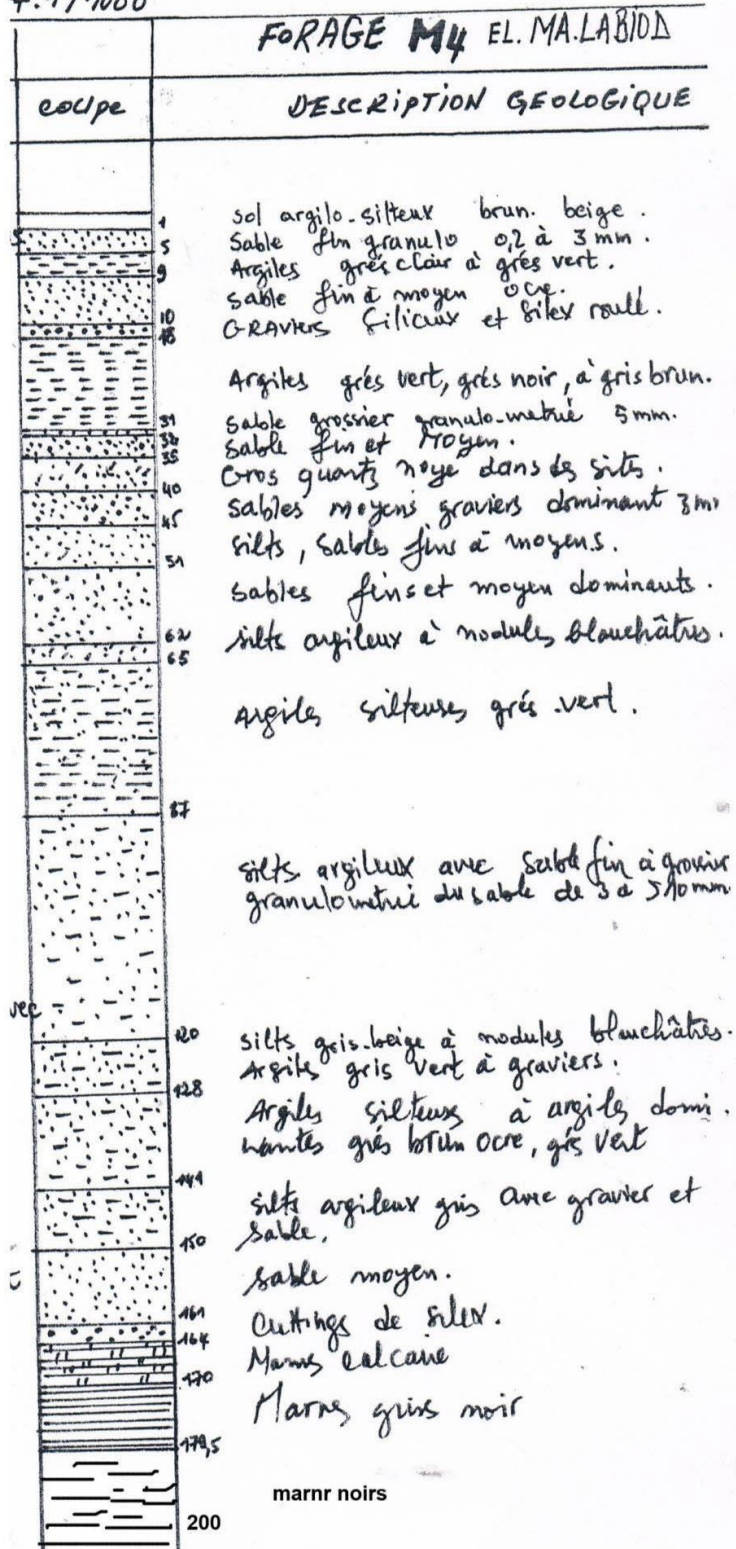 FORAGE M4 EL.MA.LABIOD
coupe
DESCRIPTION GEOLOGIQUE
1 sol argilo-silteux brun. beige.
5 Sable fin granulo 0,2 à 3 mm.
9 Argiles grés clair à grés vert.
Sable fin à moyen ocre.
10 GRAVIERS Siliceux et Silex roulé.
18
Argiles grés vert, grés noir, à gris brun.
31 Sable grossier granulo-metrié 5mm.
Sable fin et Moyen.
35 Gros quartz noyé dans des silts.
40 Sables moyens graviers dominant 3 m
45 silts, sables fins à moyens.
51
Sables fins et moyen dominants.
62 silts argileux à nodules blanchâtres.
65
Argiles silteuses grés .vert.
87
silts argileux avec sable fin à grossier
granulometrie du sable de 3 à mm
120 silts gris-beige à nodules blanchâtres.
Argiles gris vert à graviers.
128
Argiles silteuses à argiles domi.
nantes grés brun ocre, gris vert
141
silts argileux gris avec gravier et
Sable.
150
Sable moyen.
161 Cuttings de silex.
164 Marnes calcaire
170
Marnes grises noir
179,5
marnr noirs
200